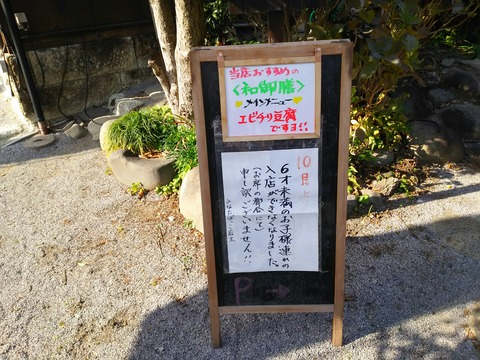 当店おすすめの
〈和御膳〉
メインメニュー
エビチリ豆腐
ですヨ!!
10月より
6才未満のお子様連れの
入店ができなくなりました。
(お席の都合にて)
申し訳ございません!!
P→